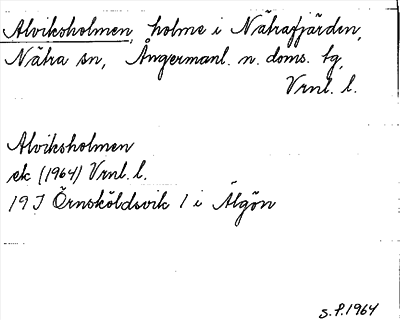 Alviksholmen, holme i Nätrafjärden,
Nätra sn, Ångermanl. n. doms. tg,
Vrnl. l.
Alviksholmen
ek (1964) Vrnl. l.
19 J Örnsköldsvik 1 i Älgön
s. f. 1964